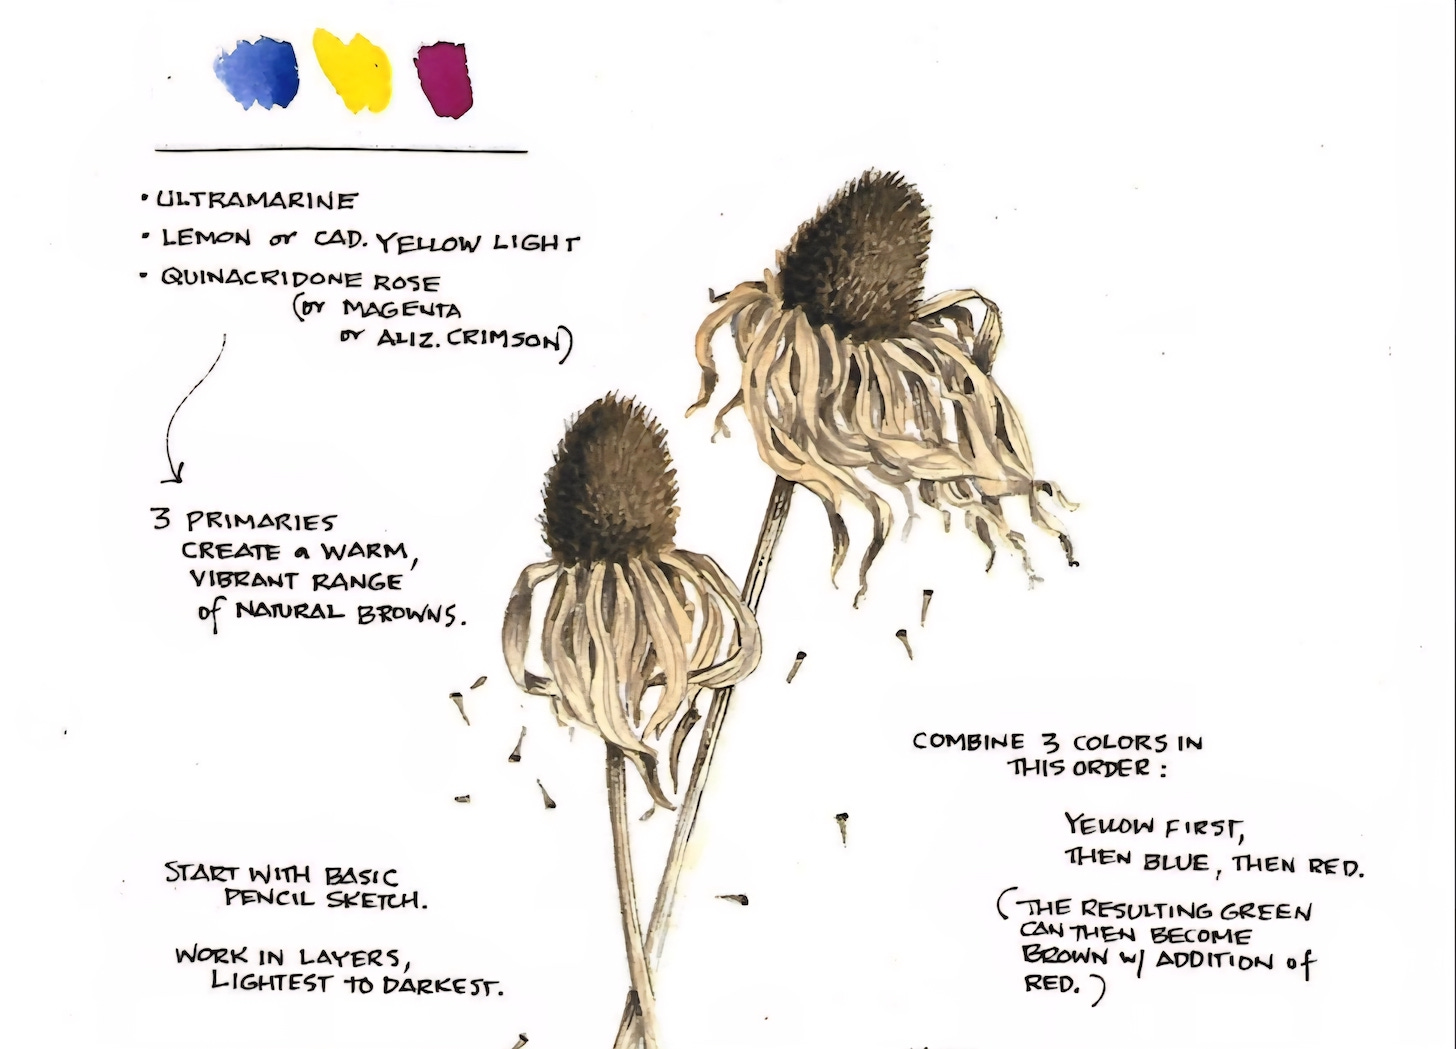 • ULTRAMARINE
• LEMON or CAD. YELLOW LIGHT
• QUINACRIDONE ROSE
(or MAGENTA
or ALIZ. CRIMSON)
3 PRIMARIES
CREATE a WARM,
VIBRANT RANGE
of NATURAL BROWNS.
START WITH BASIC
PENCIL SKETCH.
WORK IN LAYERS,
LIGHTEST TO DARKEST.
COMBINE 3 COLORS IN
THIS ORDER:
YELLOW FIRST,
THEN BLUE, THEN RED.
(THE RESULTING GREEN
CAN THEN BECOME
BROWN w/ ADDITION of
RED.)